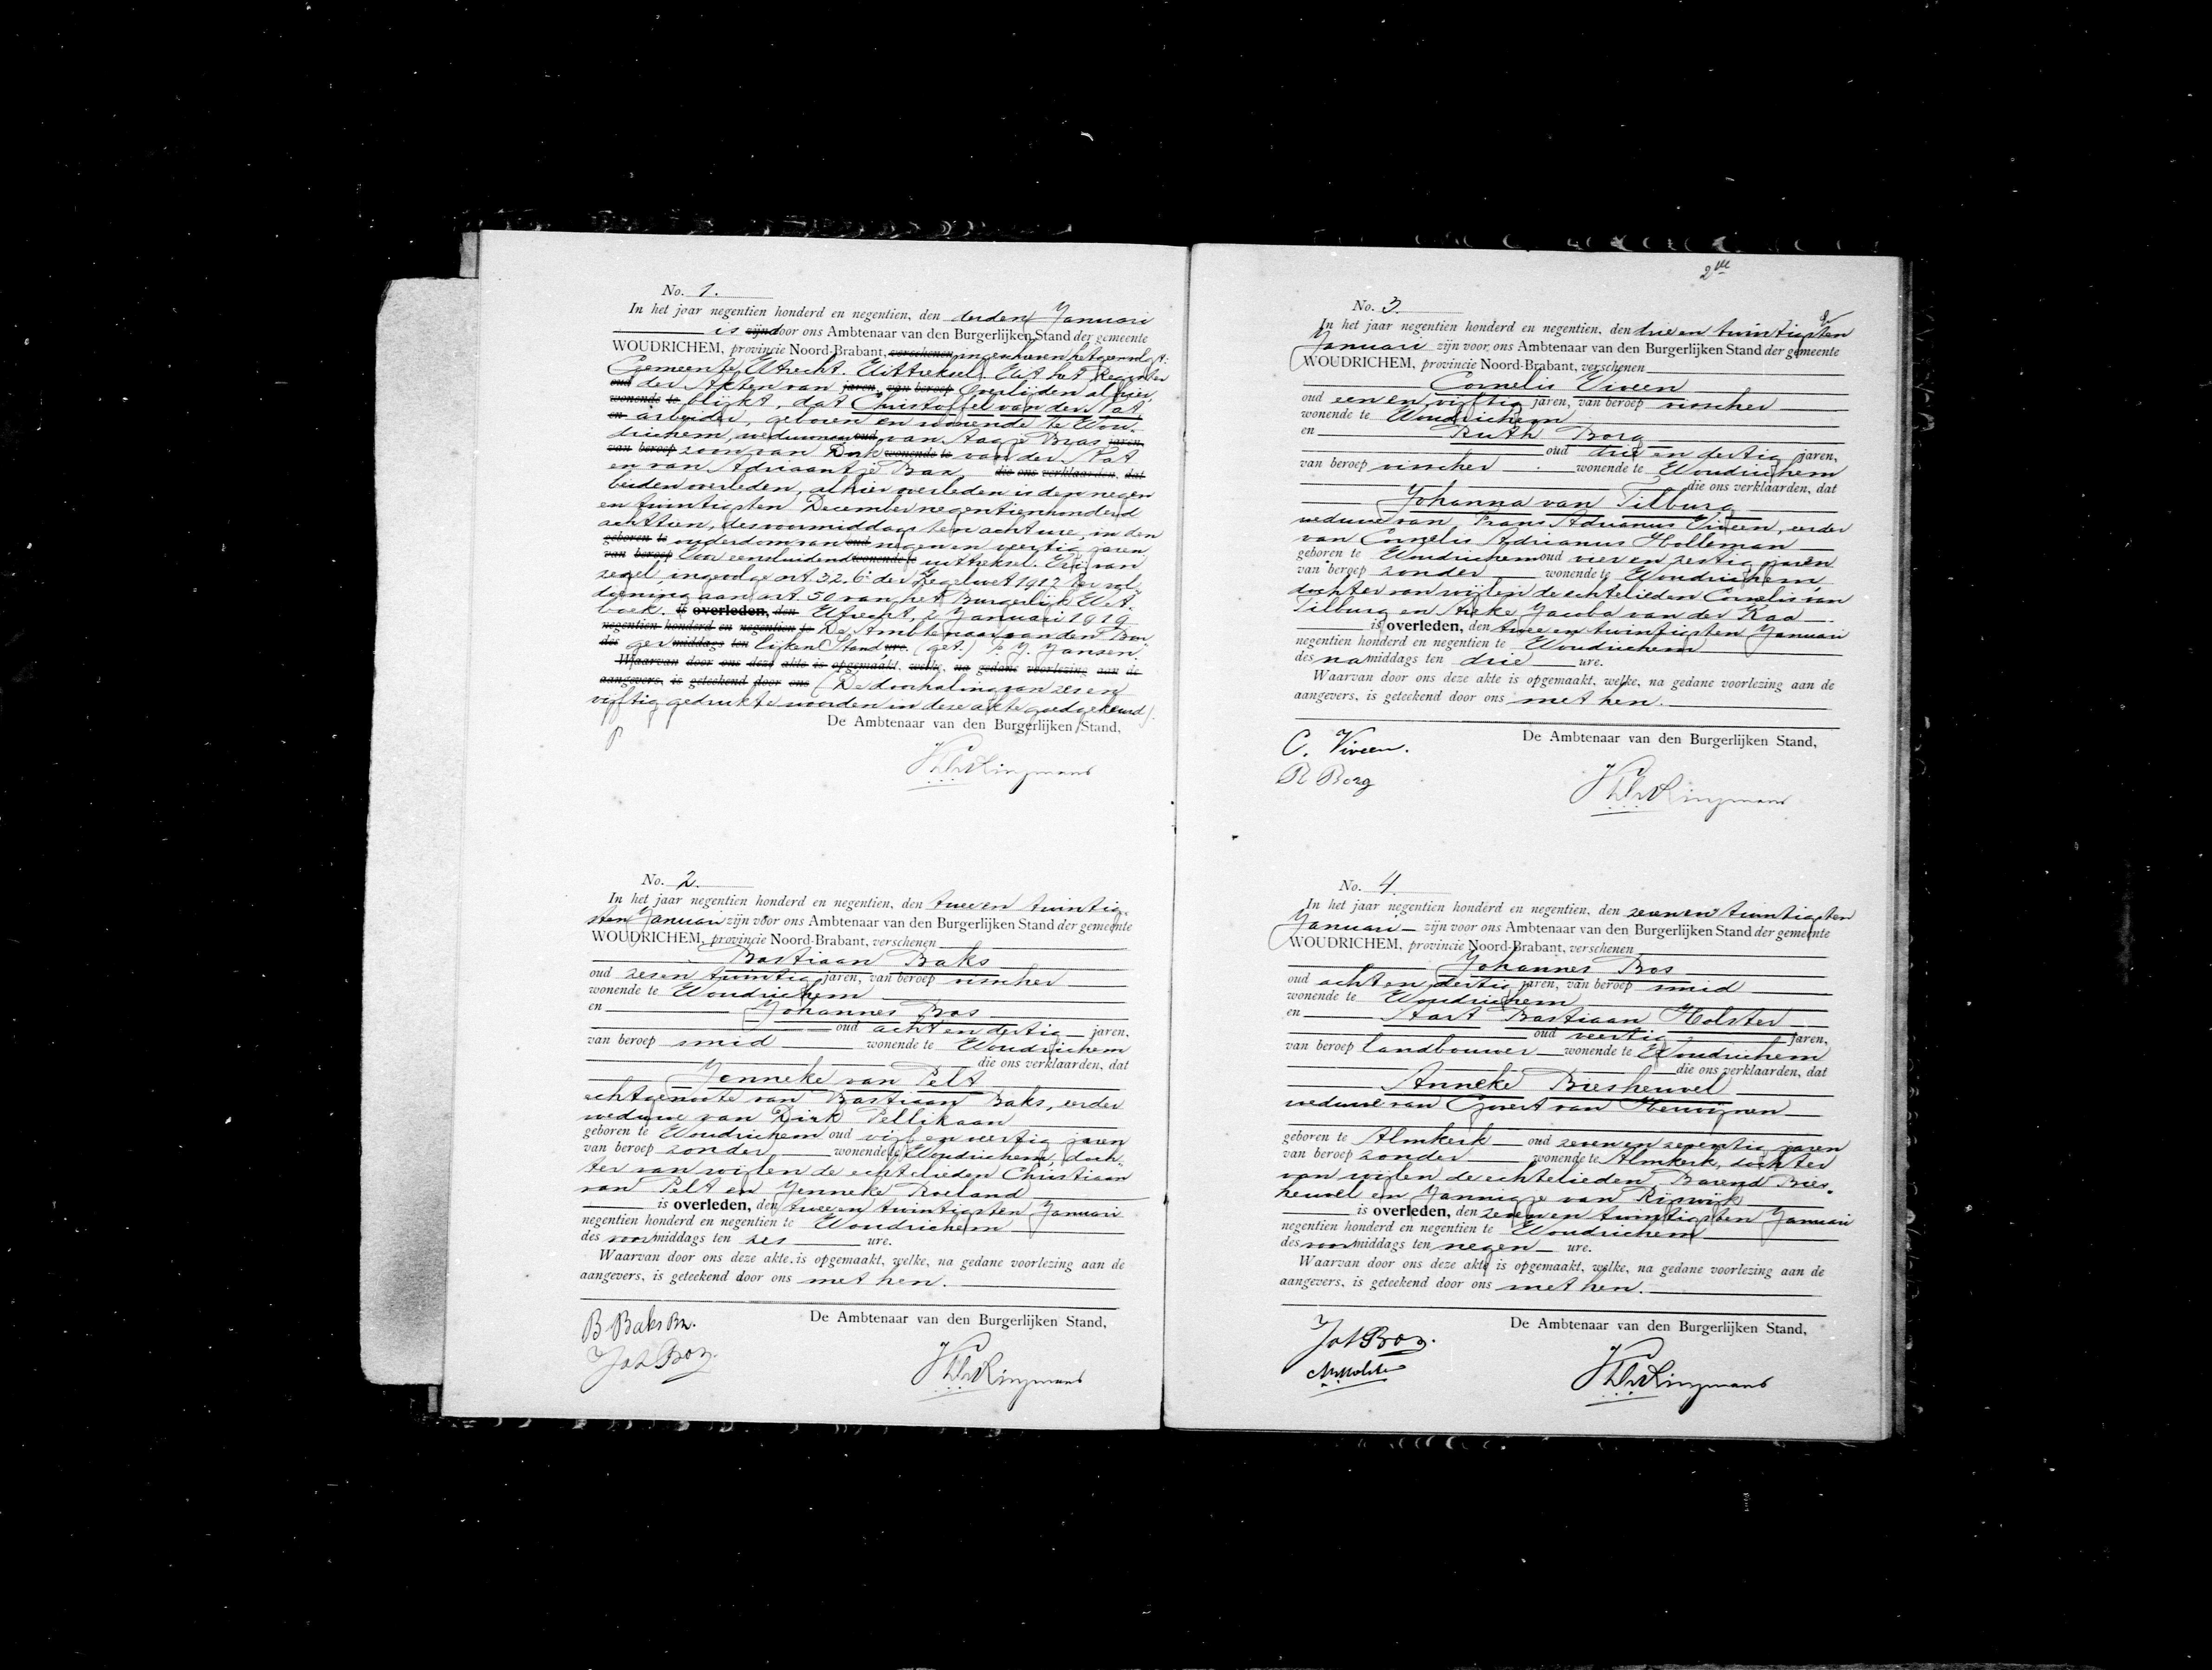 No. 1.
In het jaar negentien honderd en negentien, den derden Januari
is zijn door ons Ambtenaar van den Burgerlijken Stand der gemeente
WOUDRICHEM, provincie Noord-Brabant, verschenen ingeschreven hetgeen volgt:
Gemeente Utrecht. Uittreksel Uit het Register
oud der Akten van jaren, van beroep Overlijden alhier
wonende te blijkt, dat Christoffel van der Pat,
en arbeider, geboren en wonende te Wou-
drichem, weduwnaar oud van Aagje Bras jaren,
van beroep zoon van Dirk wonende te van der Pat
en van Adriaantje Bax die ons verklaarden, dat
beiden overleden, alhier overleden is den negen
en twintigsten December negentienhonderd
achttien, des voormiddags ten acht ure, in den
geboren te ouderdom van oud negen en veertig jaren
van beroep Voor eensluidend wonende te uittreksel. Vrij van
zegel ingevolge art. 32. 6° der Zegelwet 1917 ter vol-
doening aan art. 50 van het Burgerlijk Wet-
boek. is overleden, den Utrecht, 2 Januari 1919
negentien honderd en negentien te De Ambtenaar van den Bur
des ger middags ten lijken Stand ure. (get.) J. Jansen.
Waarvan door ons deze akte is opgemaakt, welke, na gedane voorlezing aan de
aangevers, is geteekend door ons (De doorhaling van zes en
vijftig gedrukte woorden in deze akte goedgekeurd).
De Ambtenaar van den Burgerlijken Stand,
No. 2.
In het jaar negentien honderd en negentien, den twee en twintig-
sten Januari zijn voor ons Ambtenaar van den Burgerlijken Stand der gemeente
WOUDRICHEM, provincie Noord-Brabant, verschenen
Bastiaan Baks
oud zes en twintig jaren, van beroep visscher
wonende te Woudrichem
en Johannes Bos
oud acht en dertig jaren,
van beroep smid wonende te Woudrichem
die ons verklaarden, dat
Jenneke van Pelt
echtgenoote van Bastiaan Baks, eerder
weduwe van Dirk Pellikaan
geboren te Woudrichem oud vijf en veertig jaren
van beroep zonder wonende te Woudrichem, doch-
ter van wijlen de echtelieden Christiaan
van Pelt en Jenneke Roeland
is overleden, den twee en twintigsten Januari
negentien honderd en negentien te Woudrichem
des voormiddags ten zes ure.
Waarvan door ons deze akte is opgemaakt, welke, na gedane voorlezing aan de
aangevers, is geteekend door ons met hen.
De Ambtenaar van den Burgerlijken Stand,
B Baks Bz.
Joh Bos
2de
No. 3.
In het jaar negentien honderd en negentien, den drie en twintigsten
Januari zijn voor ons Ambtenaar van den Burgerlijken Stand der gemeente
WOUDRICHEM, provincie Noord-Brabant, verschenen
Cornelis Viveen
oud een en vijftig jaren, van beroep visscher
wonende te Woudrichem
en Ruth Borg
oud drie en dertig jaren,
van beroep visscher wonende te Woudrichem
die ons verklaarden, dat
Johanna van Tilburg
weduwe van Frans Adrianus Viveen, eerder
van Cornelis Adrianus Holleman
geboren te Woudrichem oud vier en zestig jaren
van beroep zonder wonende te Woudrichem,
dochter van wijlen de echtelieden Cornelis van
Tilburg en Areke Jacoba van der Kaa
is overleden, den twee en twintigsten Januari
negentien honderd en negentien te Woudrichem
des namiddags ten drie ure.
Waarvan door ons deze akte is opgemaakt, welke, na gedane voorlezing aan de
aangevers, is geteekend door ons met hen.
De Ambtenaar van den Burgerlijken Stand,
C. Viveen.
R Borg
No. 4.
In het jaar negentien honderd en negentien, den zeven en twintigsten
Januari zijn voor ons Ambtenaar van den Burgerlijken Stand der gemeente
WOUDRICHEM, provincie Noord-Brabant, verschenen
Johannes Bos
oud acht en dertig jaren, van beroep smid
wonende te Woudrichem
en Aart Bastiaan Holster
oud veertig jaren,
van beroep landbouwer wonende te Woudrichem
die ons verklaarden, dat
Anneke Biesheuvel
weduwe van Govert van Herwijnen
geboren te Almkerk oud zeven en zeventig jaren
van beroep zonder wonende te Almkerk, dochter
van wijlen de echtelieden Barend Bies-
heuvel en Jannigje van Rijswijk
is overleden, den zeven en twintigsten Januari
negentien honderd en negentien te Woudrichem
des voormiddags ten negen ure.
Waarvan door ons deze akte is opgemaakt, welke, na gedane voorlezing aan de
aangevers, is geteekend door ons met hen.
De Ambtenaar van den Burgerlijken Stand,
Joh Bos.